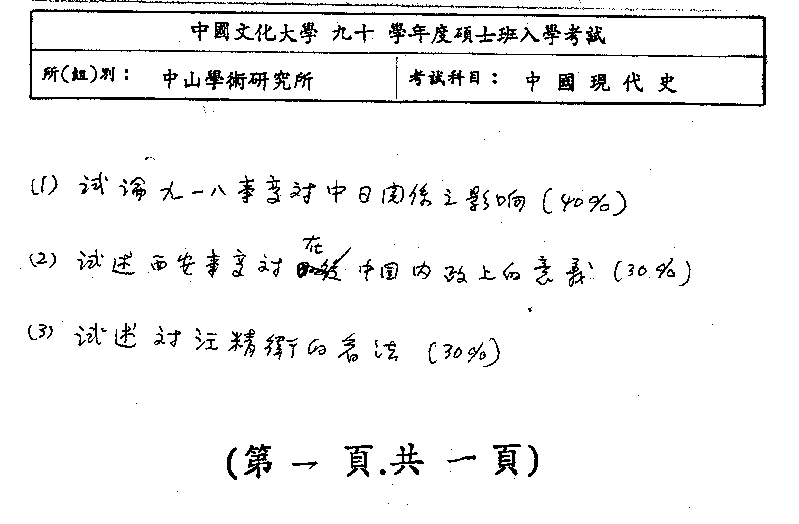 中國文化大學 九十 學年度碩士班入學考試
所(組)別： 中山學術研究所 考試科目： 中國現代史
(1) 試論九一八事變對中日関係之影响 (40%)
(2) 試述西安事變对在中国内政上的意義 (30%)
(3) 試述对汪精衛的看法 (30%)
(第一頁.共一頁)